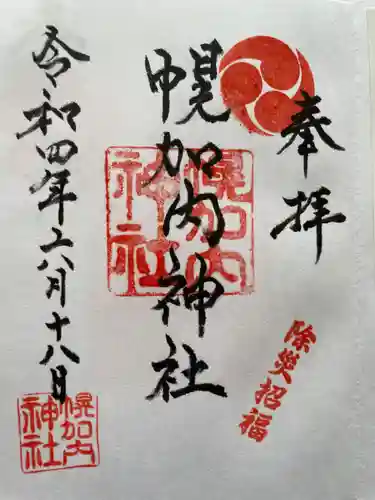 奉拝
除災招福
幌加内神社
幌加内
神社
令和四年六月十八日
幌加内
神社